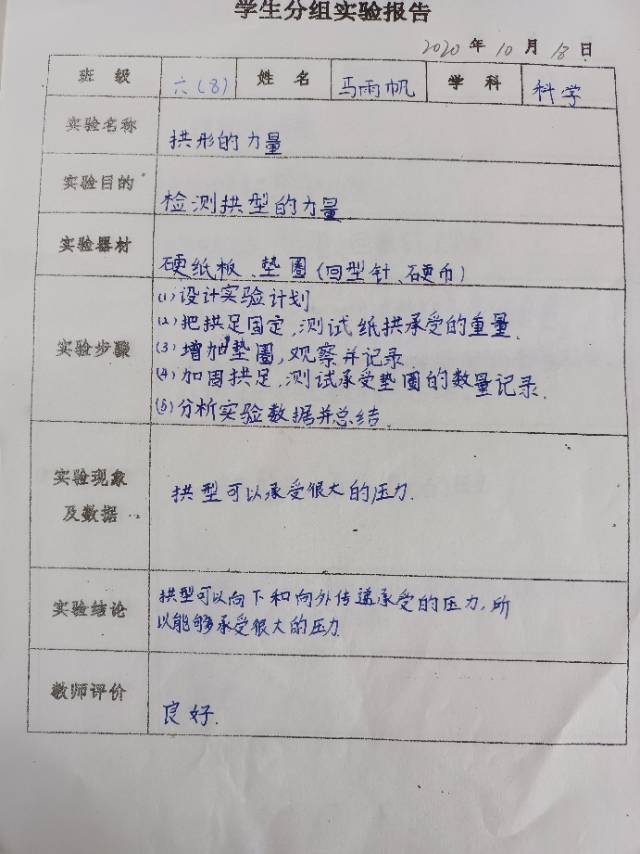 学生分组实验报告
2020 年 10 月 18 日
班 级 六(8) 姓 名 马雨帆 学 科 科学
实验名称 拱形的力量
实验目的 检测拱型的力量
实验器材 硬纸板、垫圈(回型针、硬币)
实验步骤
(1)设计实验计划
(2)把拱足固定,测试纸拱承受的重量.
(3)增加垫圈,观察并记录
(4)加固拱足,测试承受垫圈的数量记录.
(5)分析实验数据并总结.
实验现象
及数据
拱型可以承受很大的压力.
实验结论
拱型可以向下和向外传递承受的压力,所
以能够承受很大的压力
教师评价 良好.